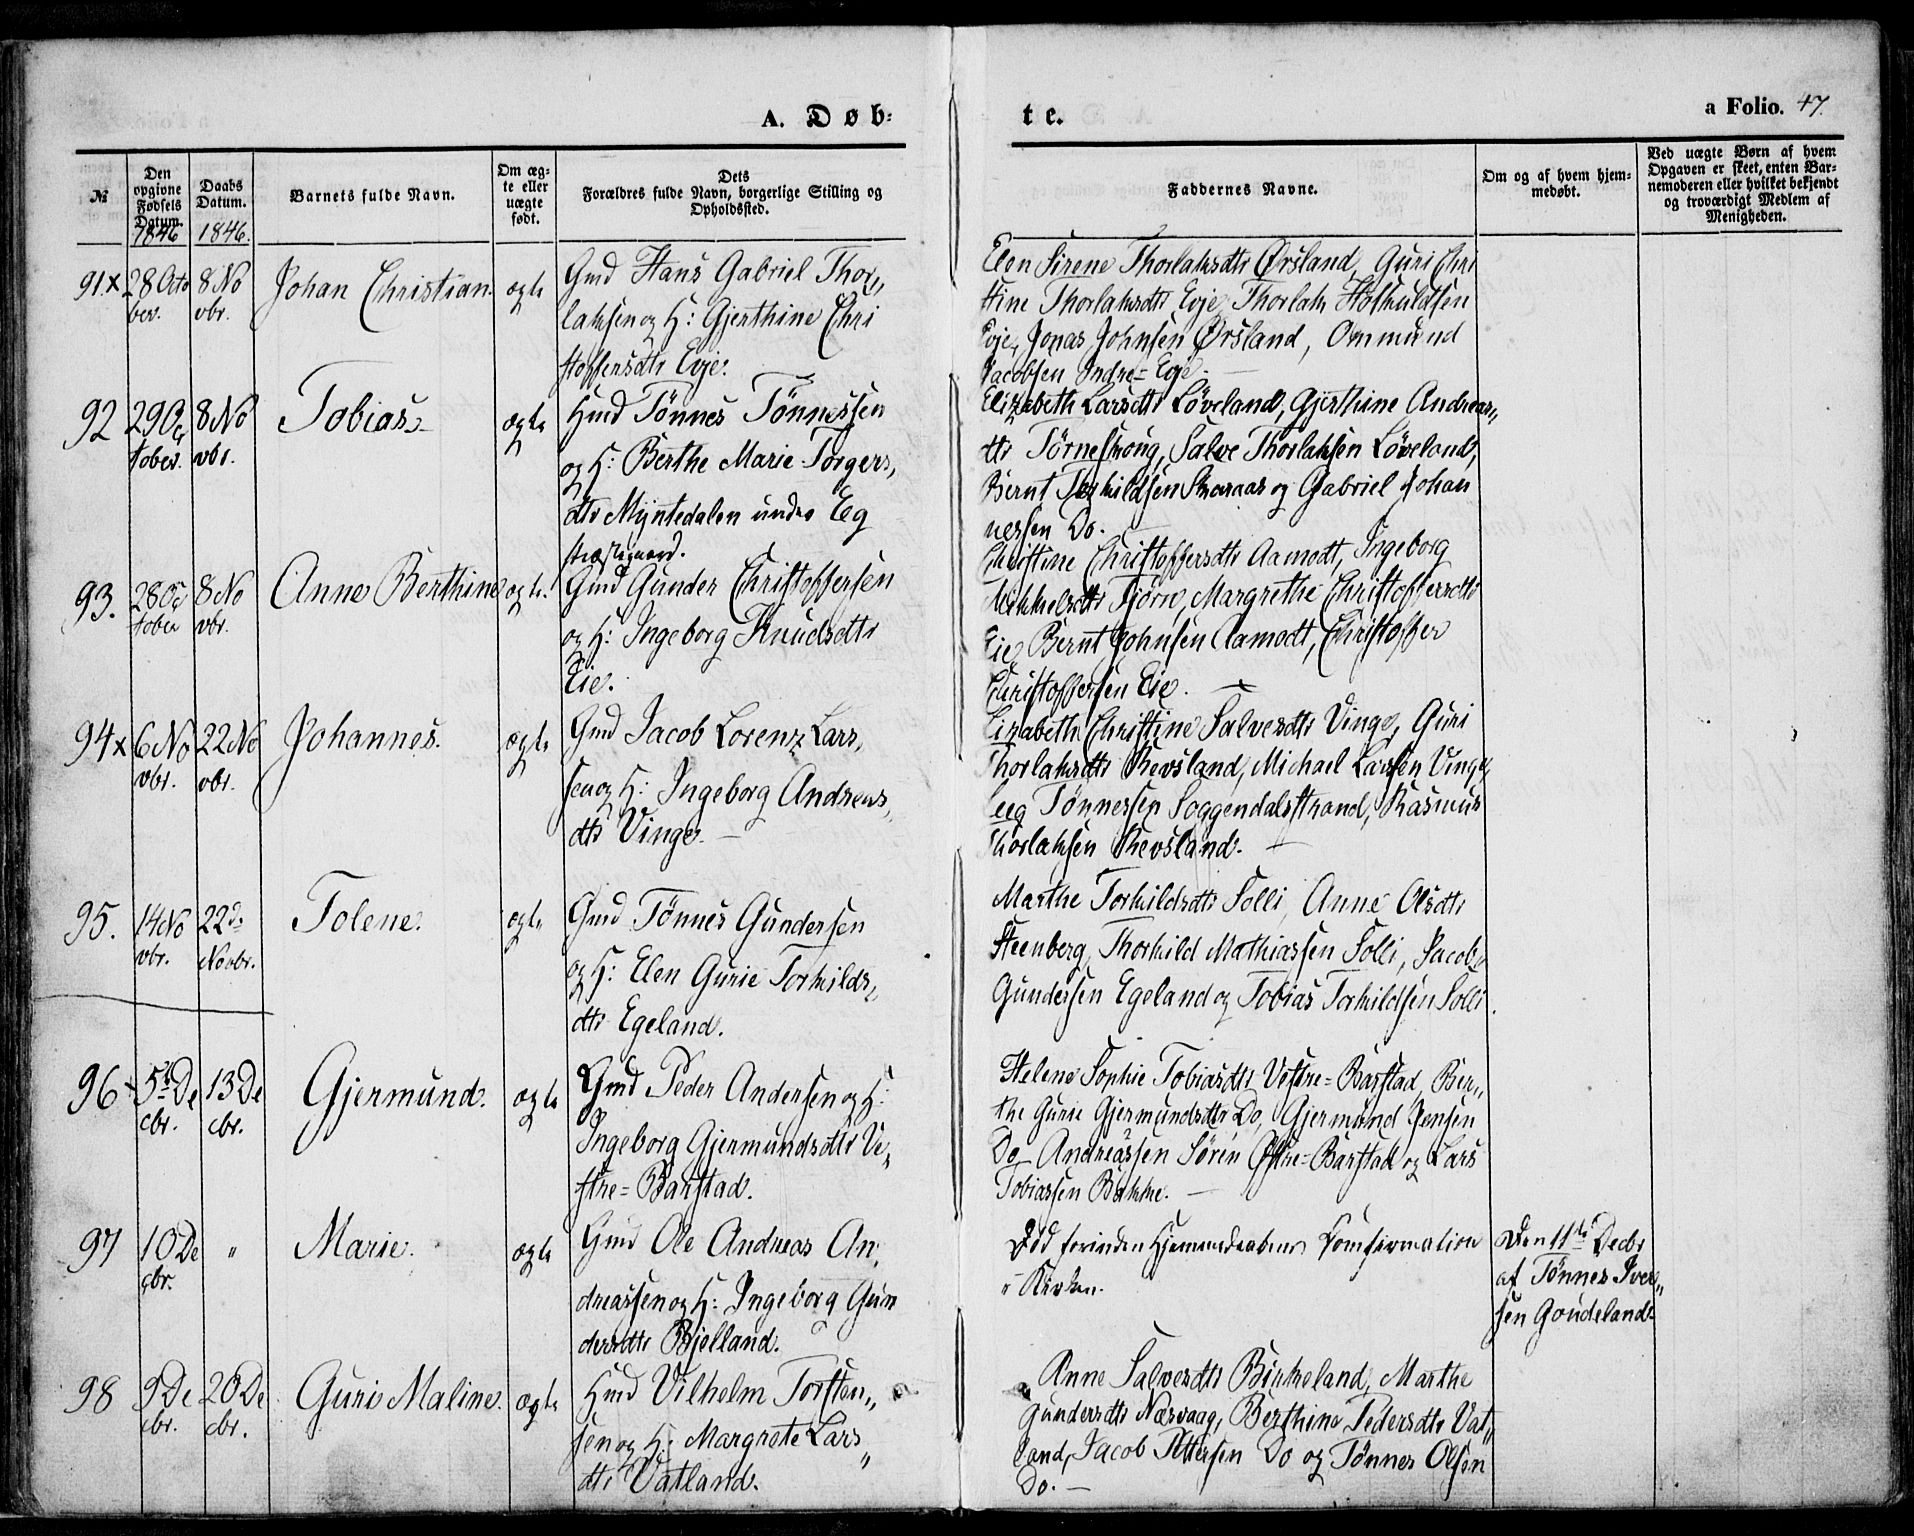 A. Døb-
te.
a Folio. 47.
№
Den opgivne Fødsels Datum.
1846
Daabs Datum.
1846.
Barnets fulde Navn.
Om ægte eller uægte født.
Dets
Forældres fulde Navn, borgerlige Stilling og
Opholdsted.
Faddernes Navne.
Om og af hvem hjem-
medøbt.
Ved uægte Børn af hvem
Opgaven er skeet, enten Bar-
nemoderen eller hvilket bekjendt
og troværdigt Medlem af
Menigheden.
91.x 28 Octo 8 No Johan Christian. ægte Gmd Hans Gabriel Thor„
ber. vbr. laksen og H: Gjerthine Chri
stoffersdtr Evje.
Elen Sirene Thorlaksdtr Ørsland, Guri Chri
stine Thorlaksdtr Evje, Thorlak Hoskuldsen
Evje, Jonas Johnsen Ørsland, Ommund
Jacobsen Indre=Evje.
92 29 Oc 8 No Tobias. ægte Hmd Tönnes Tönnessen
tober. vbr. og H: Berthe Marie Torgers„
dtr Myntedalen under Eg
præstegaard.
Elizabeth Larsdtr Løveland, Gjerthine Andreas„
dtr Törneskoug, Salve Thorlaksen Löveland,
Bernt Terkildsen Skoraas og Gabriel Johan
nessen Do.
93. 28 Oc 8 No Anne Berthine ægte. Gmd Gunder Christoffersen
tober vbr. og H: Ingeborg Knudsdtr
Eie.
Christine Christoffersdtr Aamodt, Ingeborg
Mikkelsdtr Tjörn, Margrethe Christoffersdtr
Eie, Bernt Johnsen Aamodt, Christoffer
Christoffersen Eie.
94x 6 No 22 No Johannes. ægte Gmd Jacob Lorenz Lars„
vbr. vbr. sen og H: Ingeborg Andreas„
dtr Vinge.
Elizabeth Christine Salvesdtr Vinge, Guri
Thorlaksdtr Revsland, Michael Larsen Vinge,
Tönnessen Soggendalsstrand, Rasmus
Thorlaksen Revsland.
95. 14 No 22de Tolene. ægte Gmd Tönnes Gundersen
vbr. Novbr. og H: Elen Gurie Torkilds„
dtr Egeland.
Marthe Torkildsdtr Solli, Anne Olsdtr
Steenberg, Thorkild Mathiassen Solli, Jacob
Gundersen Egeland og Tobias Torkildsen Solli.
96 5te De 13 De Gjermund. ægte Gmd Peder Andersen og H:
cbr. cbr. Ingeborg Gjermundsdtr Ve„
stre=Barstad.
Helene Sophie Tobiasdtr Vestre=Barstad, Ber„
the Gurie Gjermundsdtr Do, Gjermund Jensen
Do Andreassen Sören Östre=Barstad og Lars
Tobiassen Bakke.
97 10 De „ Marie. ægte Gmd Ole Andreas An„
cbr. dreassen og H: Ingeborg Gun
dersdtr Bjelland.
Död forinden Hjemmedaabens Comfirmation
i Kirken.
Den 11te Decbr
af Tönnes Iver„
sen Goudeland.
98 9 De 20 De Guri Maline. ægte Hmd Vilhelm Torsten„
cbr. cbr. sen og H: Margrete Lars„
dtr Vatland.
Anne Salvesdtr Birkeland, Marthe
Gundersdtr Nærvaag, Berthine Pedersdtr Vat„
land, Jacob Pettersen Do og Tönnes Olsen
Do.